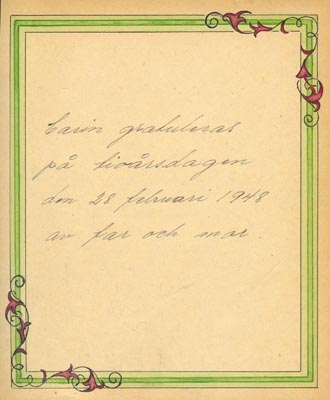 Carin gratuleras
på tioårsdagen
den 28 februari 1948
av far och mor.